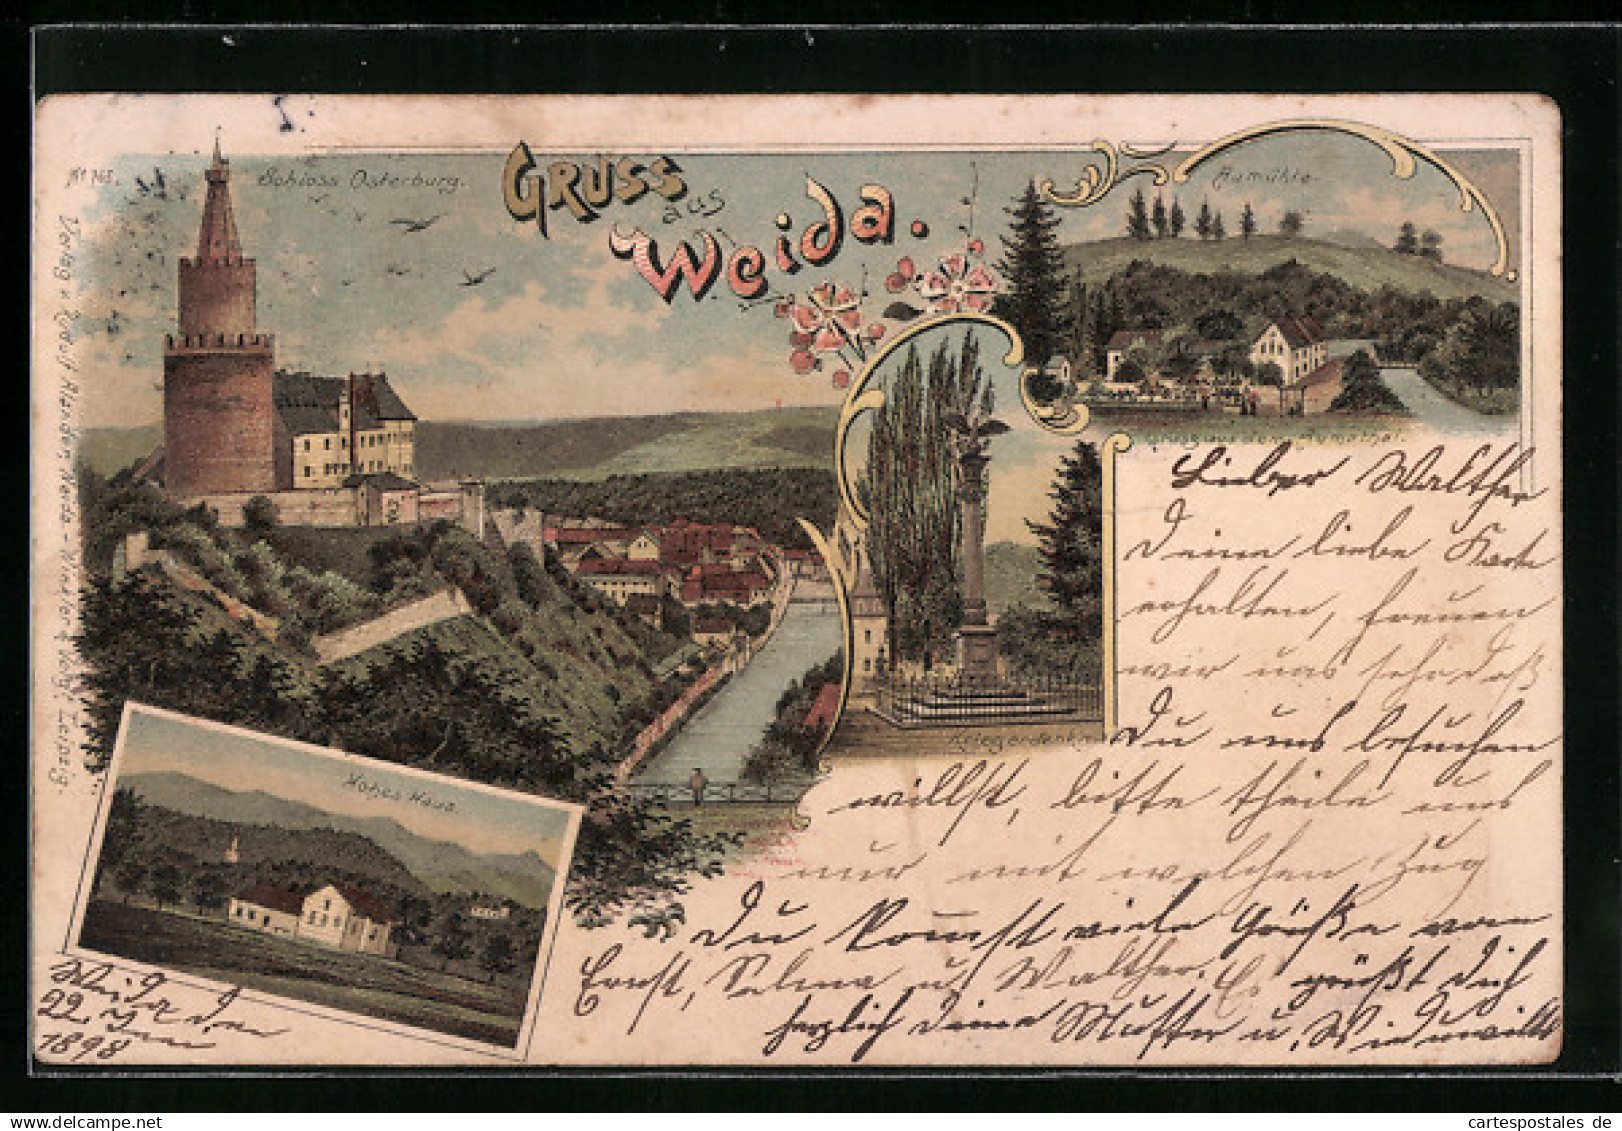 No 765.
Schloss Osterburg.
GRUSS
aus
Weida.
Aumühle.
Gruss aus dem Aumathal.
Kriegerdenkmal
Hohes Haus.
Leipzig.
Lieber Walther
Deine liebe Karte
erhalten, freuen
wir uns sehr daß
Du uns besuchen
willst, bitte theile uns
nur mit welchen Zug
Du kom̅st viele Grüße von
Ernst, Selma u. Walther. Es grüßt Dich
herzlich deine Mutter u.
Weida den
22. Jun
1898
cartespostales de